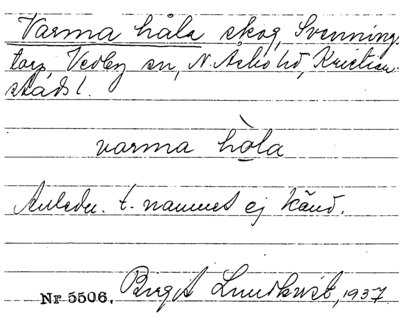 Varma håla skog, Svennings-
torp, Vedby sn, N. Åsbo hd, Kristian-
stads l.
varma hòla
Anledn. t. namnet ej känd.
Nr 5506. Birgit Lundkvist, 1937